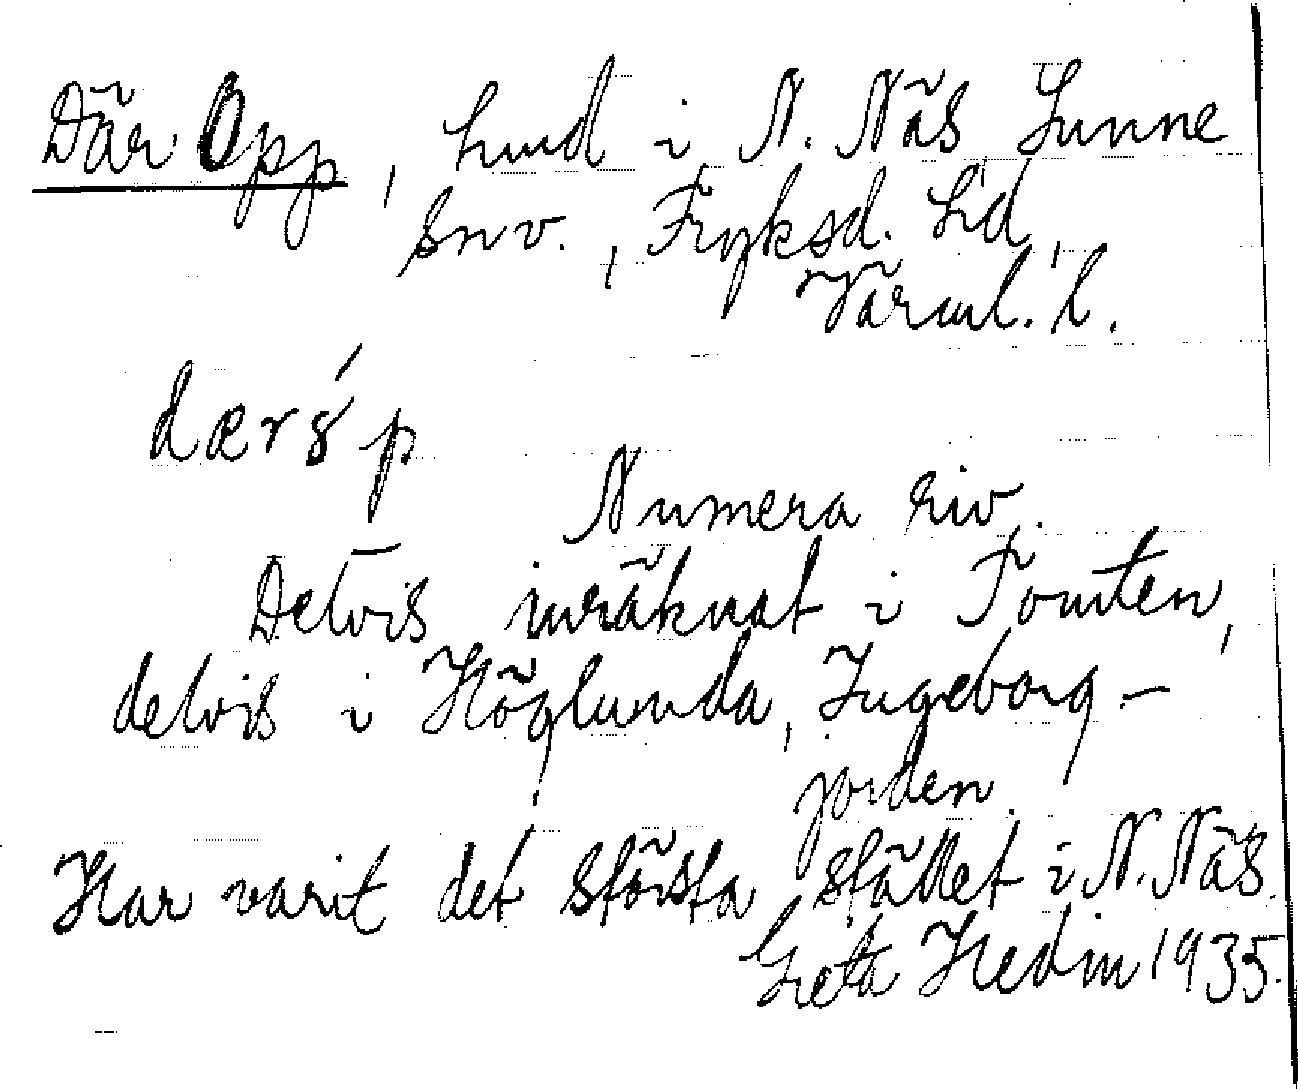 Där Opp, hmd i N. Näs Sunne
snv., Fryksd. hd,
Värml. l.
dærs´p
Numera riv.
Delvis inräknat i Tomten,
delvis i Höglunda, Ingeborg-
jorden.
Har varit det största stället i N. Näs.
Greta Hedin 1935.